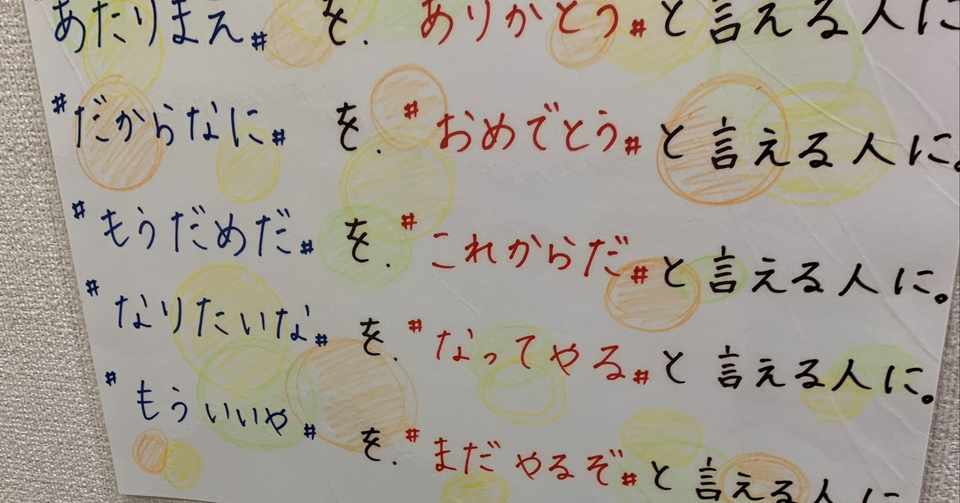 あたりまえ# を、ありがとう#と言える人に
#だからなに# を、#おめでとう#と言える人に。
#もうだめだ# を、#これからだ#と言える人に。
#なりたいな# を、#なってやる#と言える人に。
#もういいや# を、#まだやるぞ#と言える人に